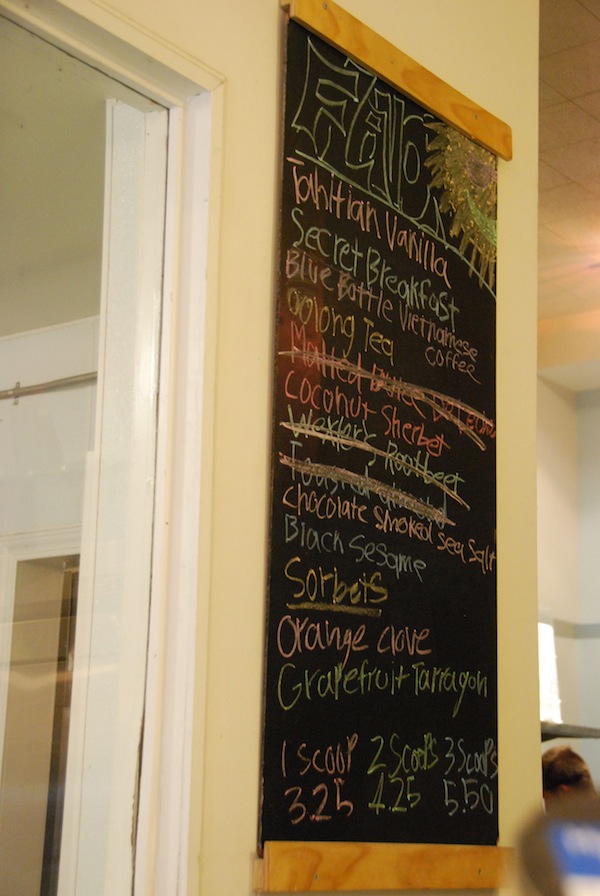 Tahitian Vanilla
Secret Breakfast
Blue Bottle Vietnamese
Coffee
Oolong Tea
Malted Dulce De Leche
Coconut Sherbet
Wexler's Rootbeer
Chocolate smoked sea salt
Black Sesame
Sorbets
Orange clove
Grapefruit Tarragon
1 scoop 2 scoops 3 scoops
3.25 4.25 5.50